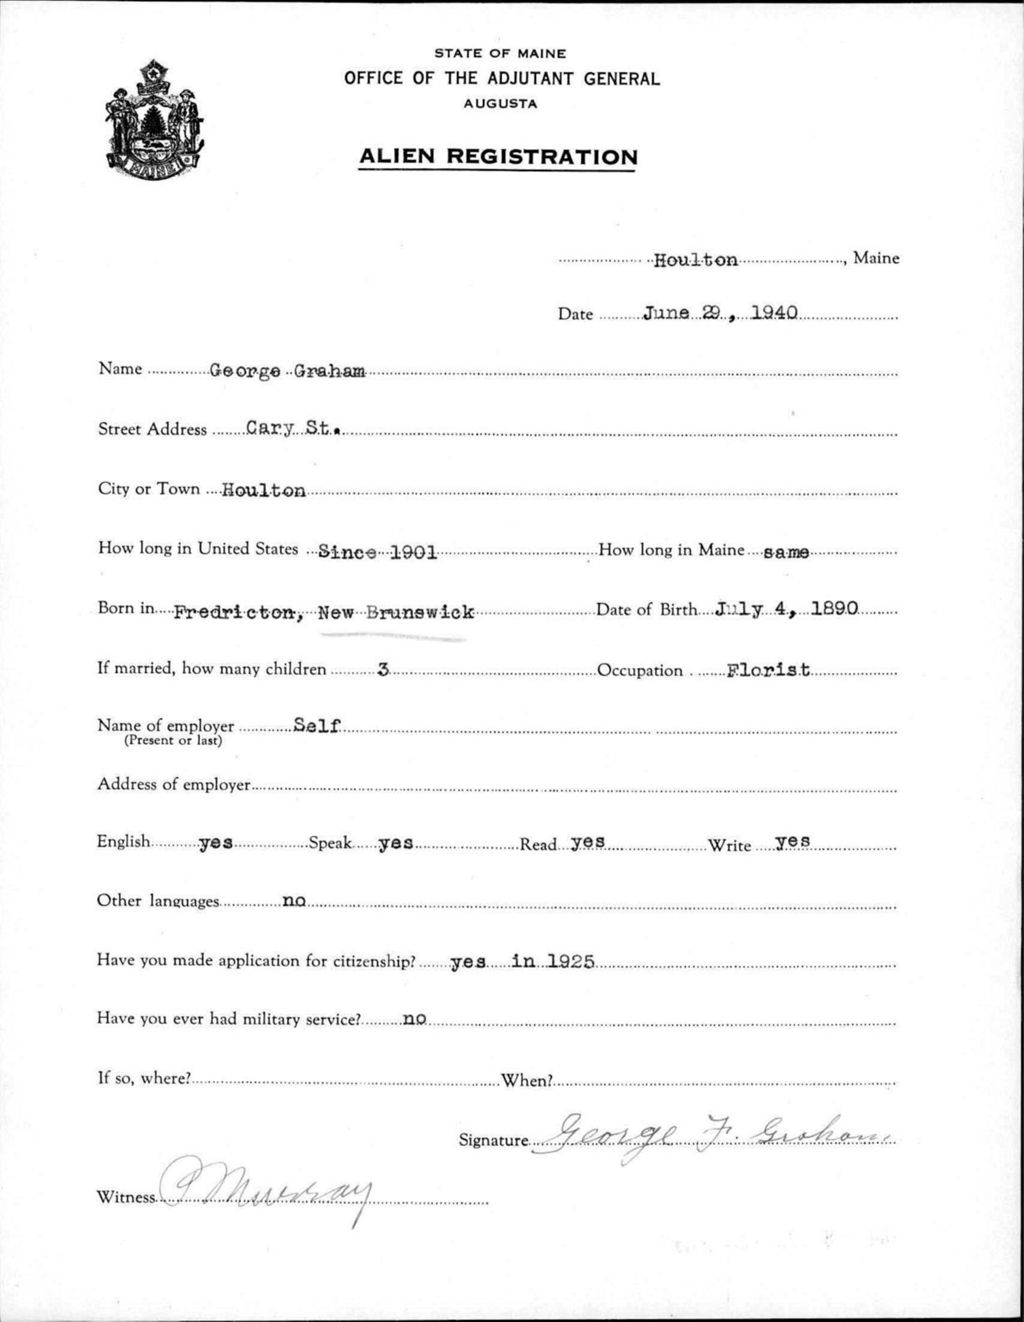 STATE OF MAINE
OFFICE OF THE ADJUTANT GENERAL
AUGUSTA
ALIEN REGISTRATION
MAINE
Houlton, Maine
Date June 29, 1940
Name George Graham
Street Address Cary St.
City or Town Houlton
How long in United States Since 1901 How long in Maine same
Born in Fredricton, New Brunswick Date of Birth July 4, 1890
If married, how many children 3 Occupation Florist
Name of employer Self
(Present or last)
Address of employer
English yes Speak yes Read yes Write yes
Other languages no
Have you made application for citizenship? yes in 1925
Have you ever had military service? no
If so, where? When?
Signature George F. Graham
Witness Murray